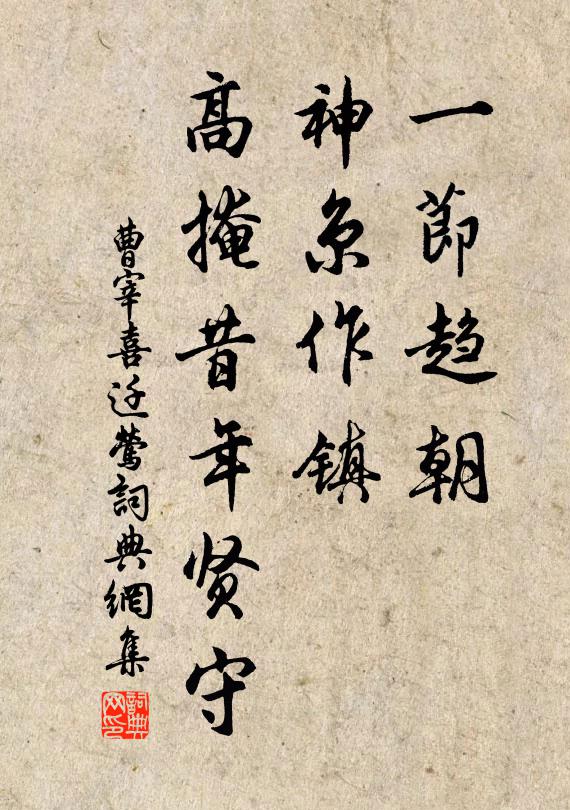 一節趋朝
神京作镇
高掩昔年贤守
曹宰喜迁鶯詞典網集
詞典网印